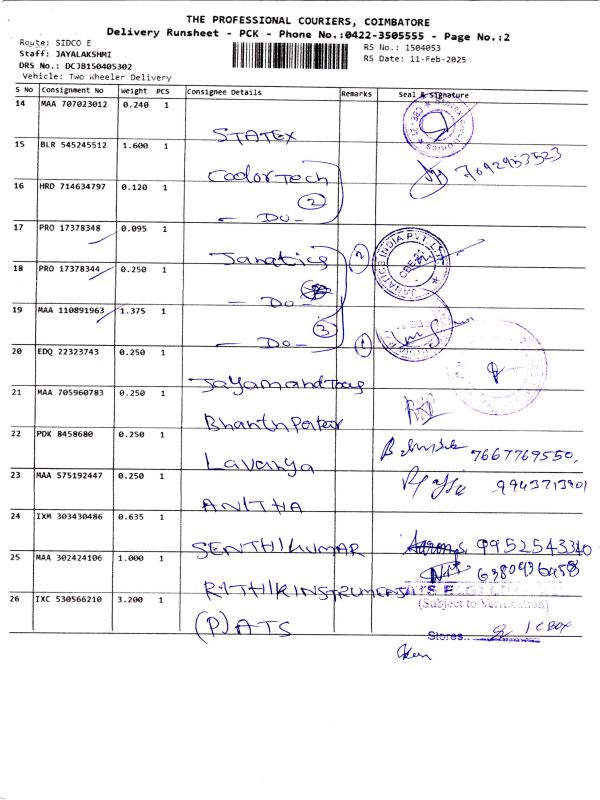 THE PROFESSIONAL COURIERS, COIMBATORE
Delivery Runsheet - PCK - Phone No.:0422-3505555 - Page No.:2
Route: SIDCO E
RS No.: 1504053
Staff: JAYALAKSHMI
RS Date: 11-Feb-2025
DRS No.: DCJB150405302
Vehicle: Two Wheeler Delivery
S No Consignment No Weight PCS Consignee Details Remarks Seal & Signature
14 MAA 707023012 0.240 1 STATEX
15 BLR 545245512 1.600 1 CoolorTech 7092953523
16 HRD 714634797 0.120 1 - Do - 2
17 PRO 17378348 0.095 1 Janatics 2 JANATICS INDIA PVT. LTD.
18 PRO 17378344 0.250 1 - Do -
19 MAA 110891963 1.375 1 - Do - 3 1
20 EDQ 22323743 0.250 1
21 MAA 705960783 0.250 1
22 PDK 8458680 0.250 1 Lavanya 7667769550,
23 MAA 575192447 0.250 1 ANITHA 9943713901
24 IXM 303430486 0.635 1 SENTHIKUMAR 9952543340
25 MAA 302424106 1.000 1 RITHIKINSTRUMENS 6380936958
(Subject to Verification)
26 IXC 530566210 3.200 1 (P) ATS
Stores.. 1 CBOX